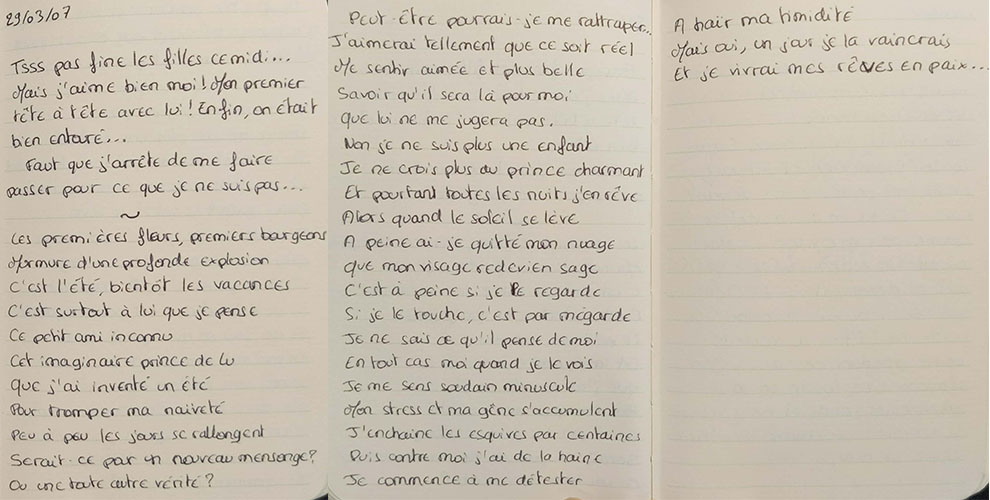 29/03/07
Tsss pas fine les filles ce midi...
Mais j'aime bien moi! Mon premier
tête à tête avec lui! Enfin, on était
bien entouré...
Faut que j'arrête de me faire
passer pour ce que je ne suis pas...
~
Les premières fleurs, premiers bourgeons
Murmure d'une profonde explosion
C'est l'été, bientôt les vacances
C'est surtout à lui que je pense
Ce petit ami inconnu
Cet imaginaire prince de lu
Que j'ai inventé un été
Pour tromper ma naïveté
Peu à peu les jours se rallongent
Serait-ce par un nouveau mensonge?
Ou une toute autre vérité?
Peut-être pourrais-je me rattraper...
J'aimerai tellement que ce soit réel
Me sentir aimée et plus belle
Savoir qu'il sera là pour moi
Que lui ne me jugera pas.
Non je ne suis plus une enfant
Je ne crois plus au prince charmant
Et pourtant toutes les nuits j'en rêve
Alors quand le soleil se lève
A peine ai-je quitté mon nuage
Que mon visage redevien sage
C'est à peine si je le regarde
Si je le touche, c'est par mégarde
Je ne sais ce qu'il pense de moi
En tout cas moi quand je le vois
Je me sens soudain minuscule
Mon stress et ma gêne s'accumulent
J'enchaine les esquives par centaines
Puis contre moi j'ai de la haine
Je commence à me détester
A haïr ma timidité
Mais oui, un jour je la vaincrais
Et je vivrai mes rêves en paix...